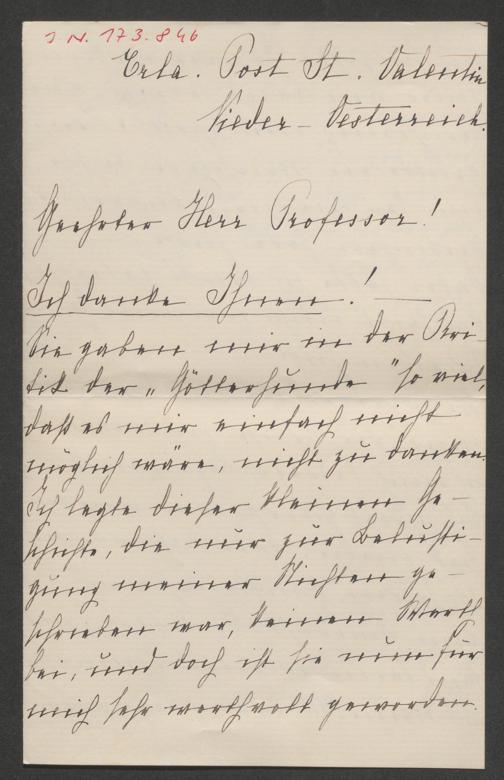 J N. 173.846
Erla. Post St. Valentin
Nieder-Oesterreich.
Geehrter Herr Professor!
Ich danke Ihnen! —
Sie gaben mir in der Kri-
tik der „Götterhunde" so viel,
daß es mir einfach nicht
möglich wäre, nicht zu danken.
Ich legte dieser kleinen Ge-
schichte, die nur zur Belusti-
gung meiner Nichten ge-
schrieben war, keinen Werth
bei, und doch ist sie nun für
mich sehr werthvoll geworden.